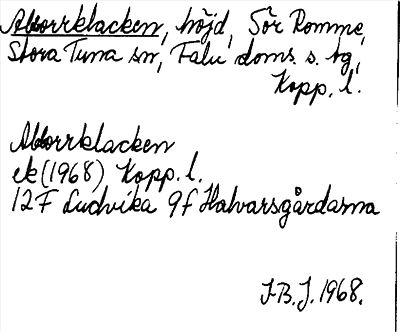 Abborrklacken, höjd, Sör Romme,
Stora Tuna sn, Falu doms. s. tg,
Kopp. l.
Abborrklacken
ek (1968) Kopp. l.
12F Ludvika 9f Halvarsgårdarna
J.B.J. 1968.